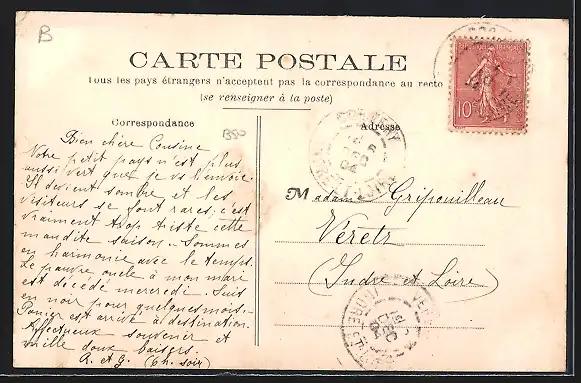 B
CARTE POSTALE
Tous les pays étrangers n'acceptent pas la correspondance au recto
(se renseigner à la poste)
Correspondance
B50
Adresse
10
Bien chère Cousine
Votre petit pays n'est plus
aussi vert que je vs l'envoie.
Il devient sombre et les
visiteurs se font rares. c'est
vraiment trop triste cette
maudite saison.. Sommes
en harmonie avec le temps.
Le pauvre oncle à mon mari
est décédé mercredi. Suis
en noir pour quelques mois.
Panier est arrivé à destination.
Affectueux souvenir et
mille doux baisers.
R. et G. (Ch. soir)
Madame Gripouilleau
Véretz
(Indre et Loire)